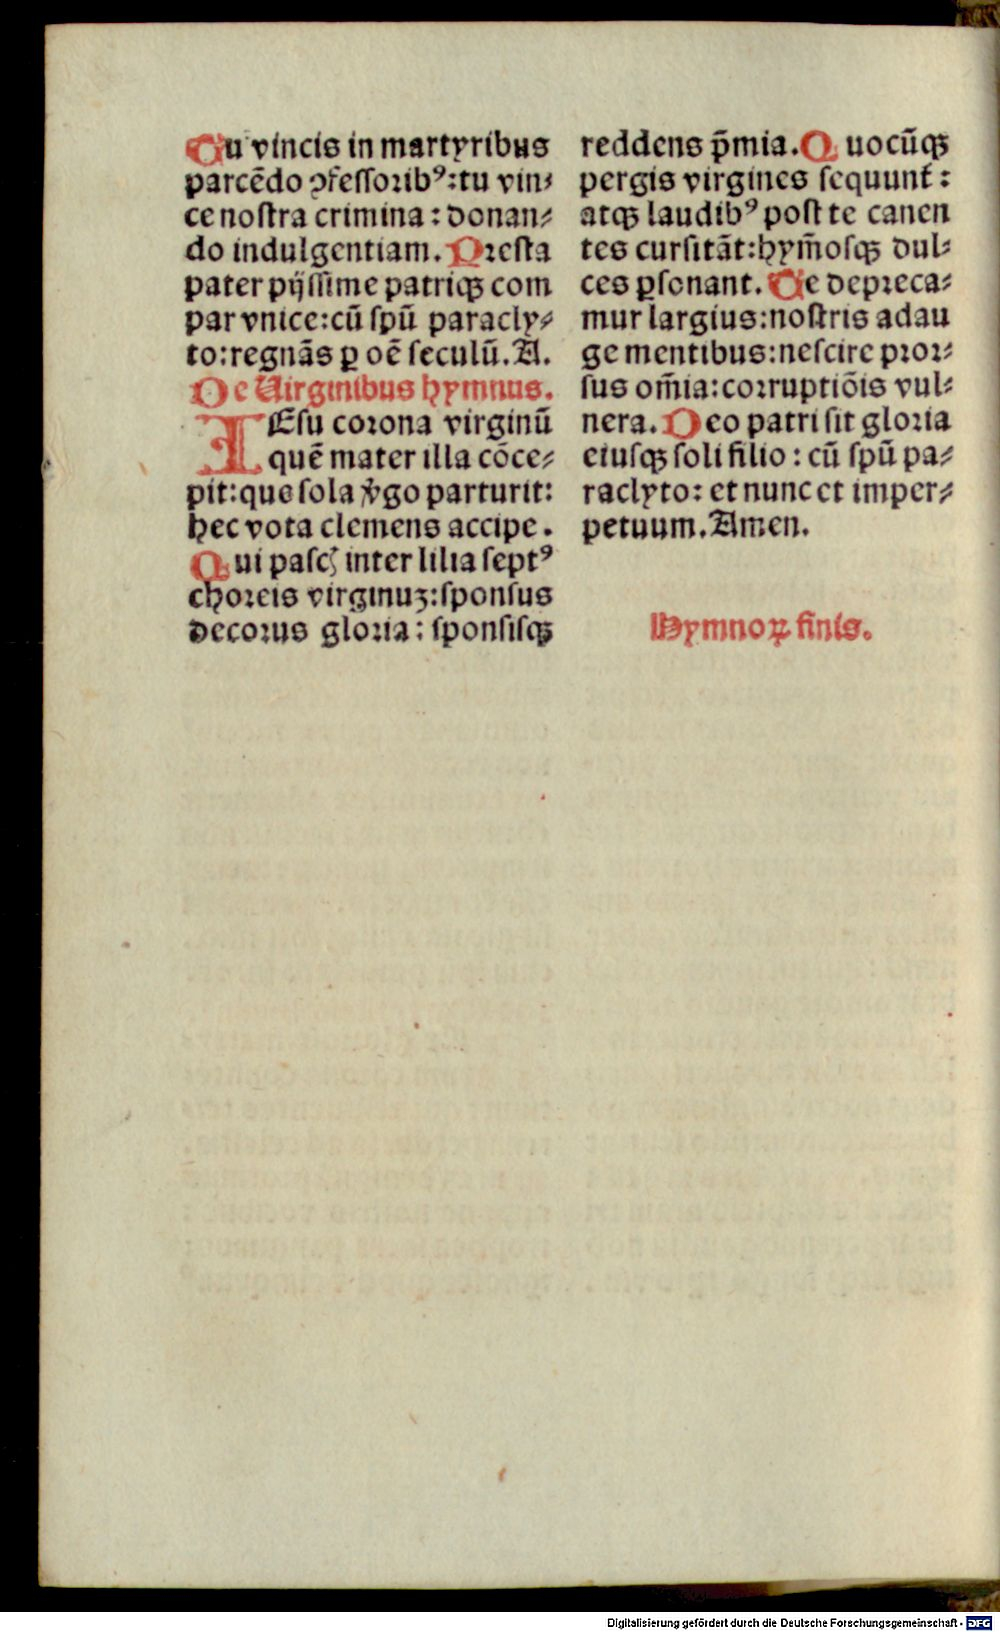 Tu vincis in martyribus
parcēdo ꝯfessoribꝰ: tu vin⸗
ce nostra crimina: donan⸗
do indulgentiam. Presta
pater pijssime patriqꝫ com
par vnice: cū spū paracly⸗
to: regnās ꝑ oē seculū. A.
De Uirginibus hymnus.
IEsu corona virginū
quē mater illa cōce⸗
pit: que sola v̾go parturit:
hec vota clemens accipe.
Qui pascꝭ inter lilia septꝰ
choreis virginuꝫ: sponsus
decorus gloria: sponsisqꝫ
reddens p̄mia. Quocūqꝫ
pergis virgines sequunt̄:
atqꝫ laudibꝰ post te canen
tes cursitāt: hym̄osqꝫ dul⸗
ces ꝑsonant. Te depreca⸗
mur largius: nostris adau
ge mentibus: nescire pror⸗
sus om̄ia: corruptiōis vul⸗
nera. Deo patri sit gloria
eiusqꝫ soli filio: cū spū pa⸗
raclyto: et nunc et imper⸗
petuum. Amen.
Hymnoꝝ finis.
Digitalisierung gefördert durch die Deutsche Forschungsgemeinschaft - DFG